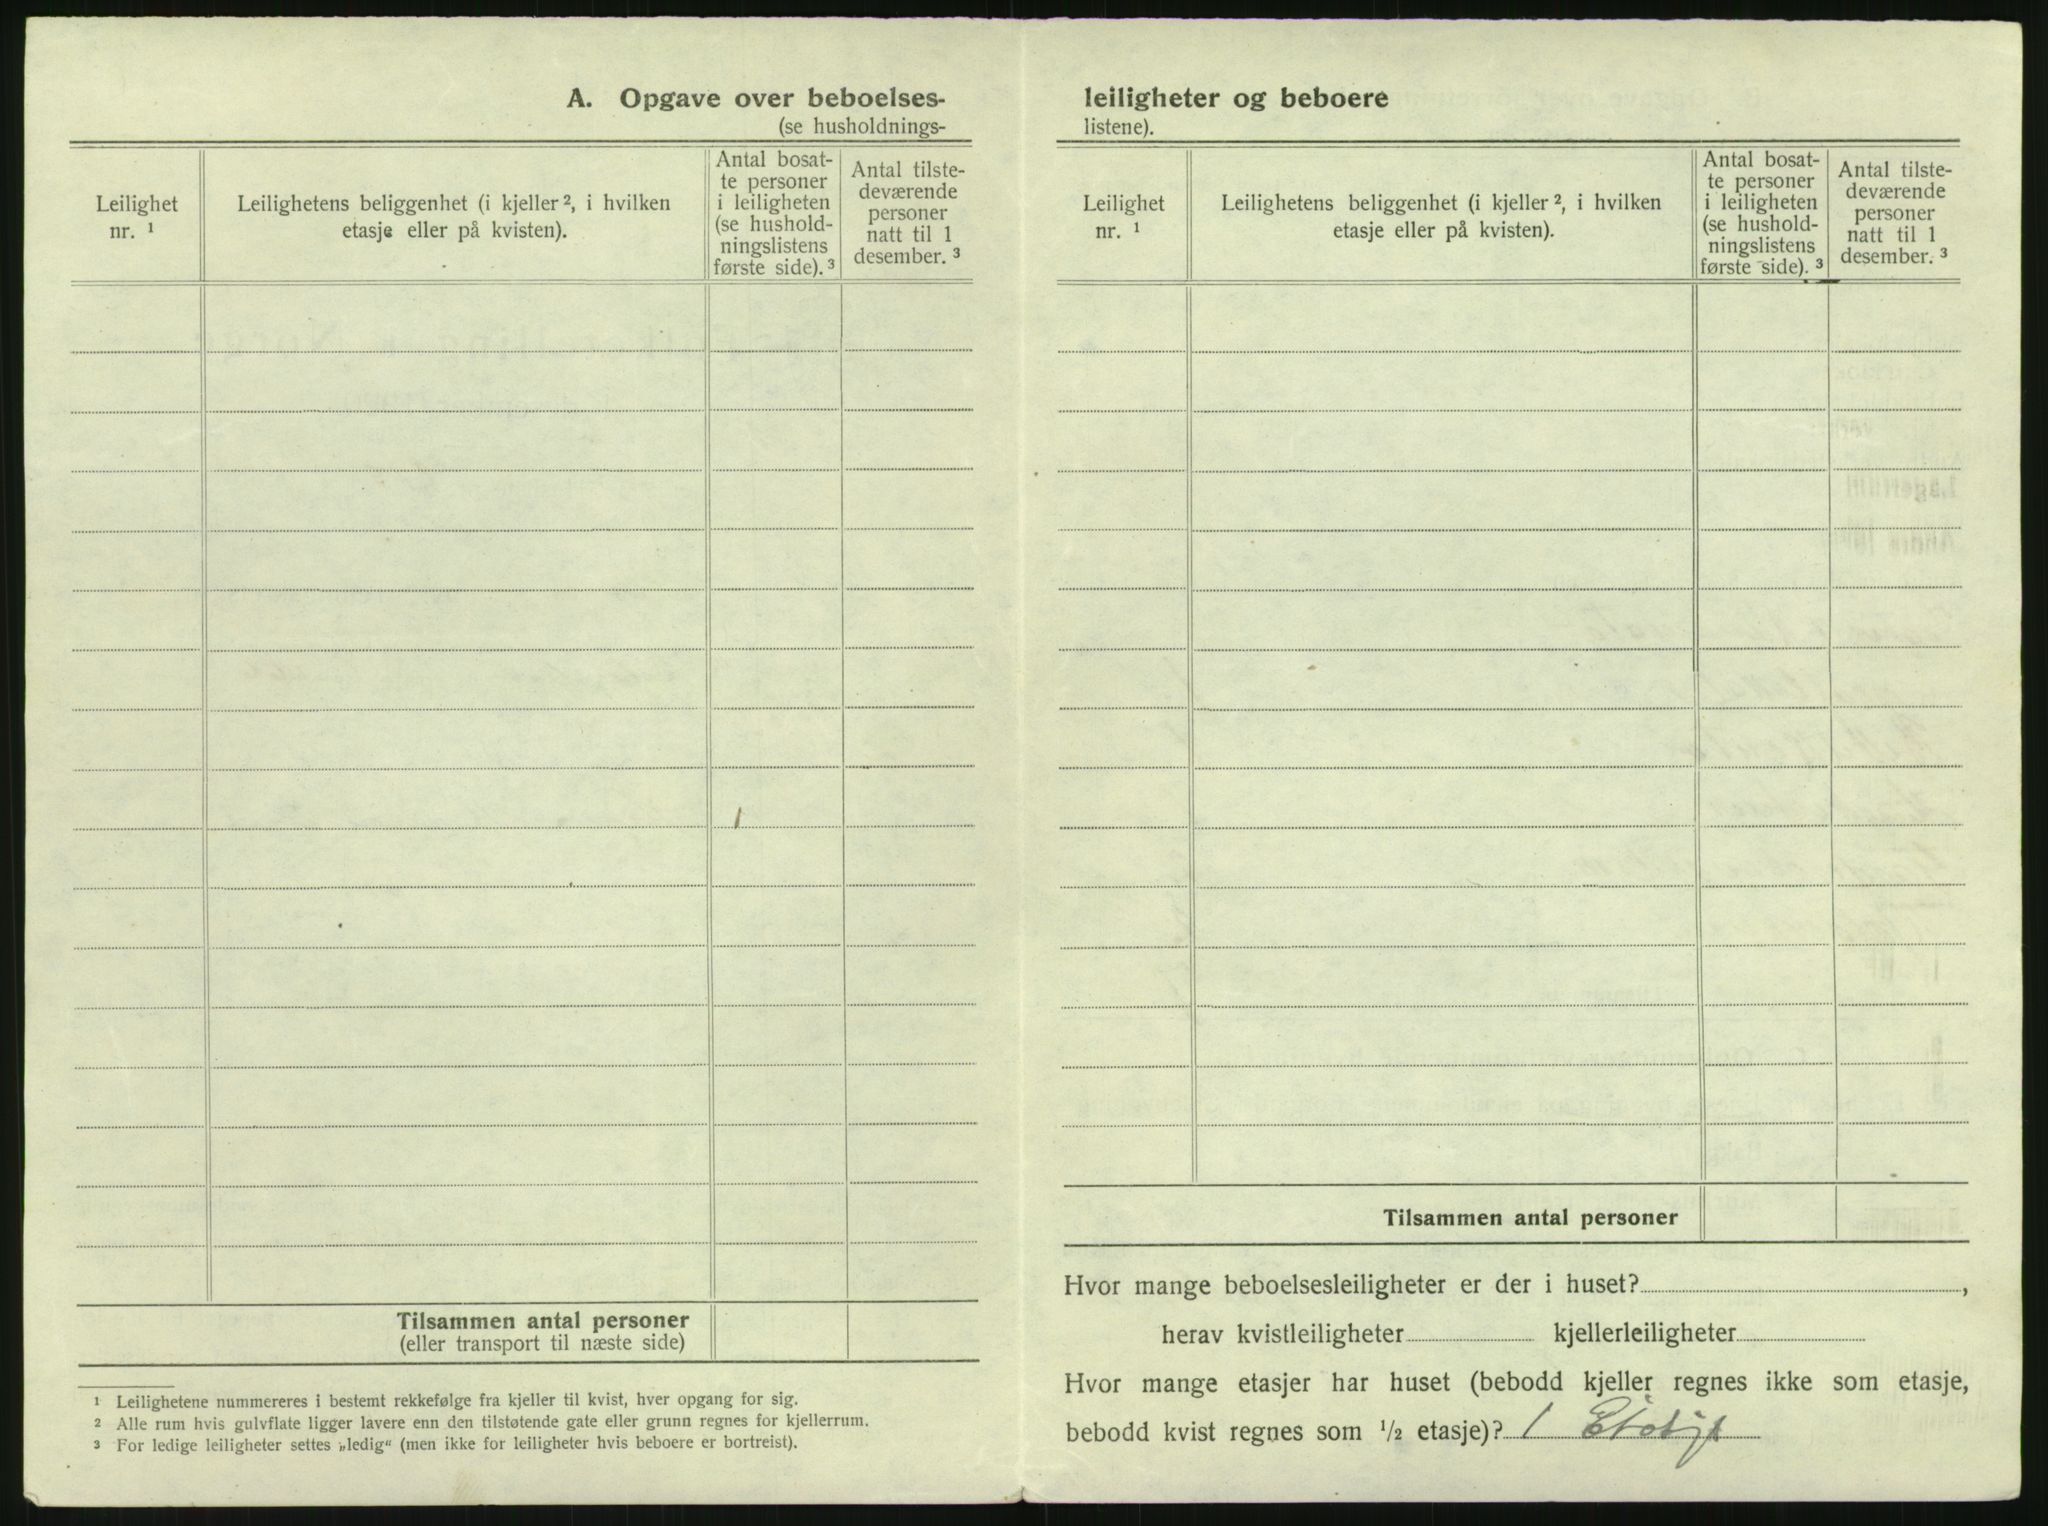 A. Opgave over beboelses-
(se husholdnings-
Leilighet
nr. ¹
Leilighetens beliggenhet (i kjeller ², i hvilken
etasje eller på kvisten).
Antal bosat-
te personer
i leiligheten
(se hushold-
ningslistens
første side). ³
Antal tilste-
deværende
personer
natt til 1
desember. ³
Tilsammen antal personer
(eller transport til næste side)
¹ Leilighetene nummereres i bestemt rekkefølge fra kjeller til kvist, hver opgang for sig.
² Alle rum hvis gulvflate ligger lavere enn den tilstøtende gate eller grunn regnes for kjellerrum.
³ For ledige leiligheter settes „ledig“ (men ikke for leiligheter hvis beboere er bortreist).
leiligheter og beboere
listene).
Leilighet
nr. ¹
Leilighetens beliggenhet (i kjeller ², i hvilken
etasje eller på kvisten).
Antal bosat-
te personer
i leiligheten
(se hushold-
ningslistens
første side). ³
Antal tilste-
deværende
personer
natt til 1
desember. ³
Tilsammen antal personer
Hvor mange beboelsesleiligheter er der i huset? ,
herav kvistleiligheter kjellerleiligheter
Hvor mange etasjer har huset (bebodd kjeller regnes ikke som etasje,
bebodd kvist regnes som ½ etasje)? 1